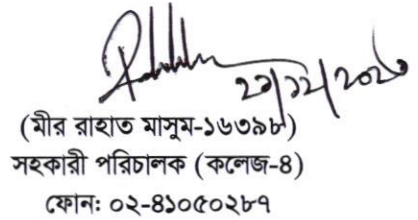 ২১/১২/২০২৩
(মীর রাহাত মাসুম-১৬৩৯৮)
সহকারী পরিচালক (কলেজ-৪)
ফোন: ০২-৪১০৫০২৮৭